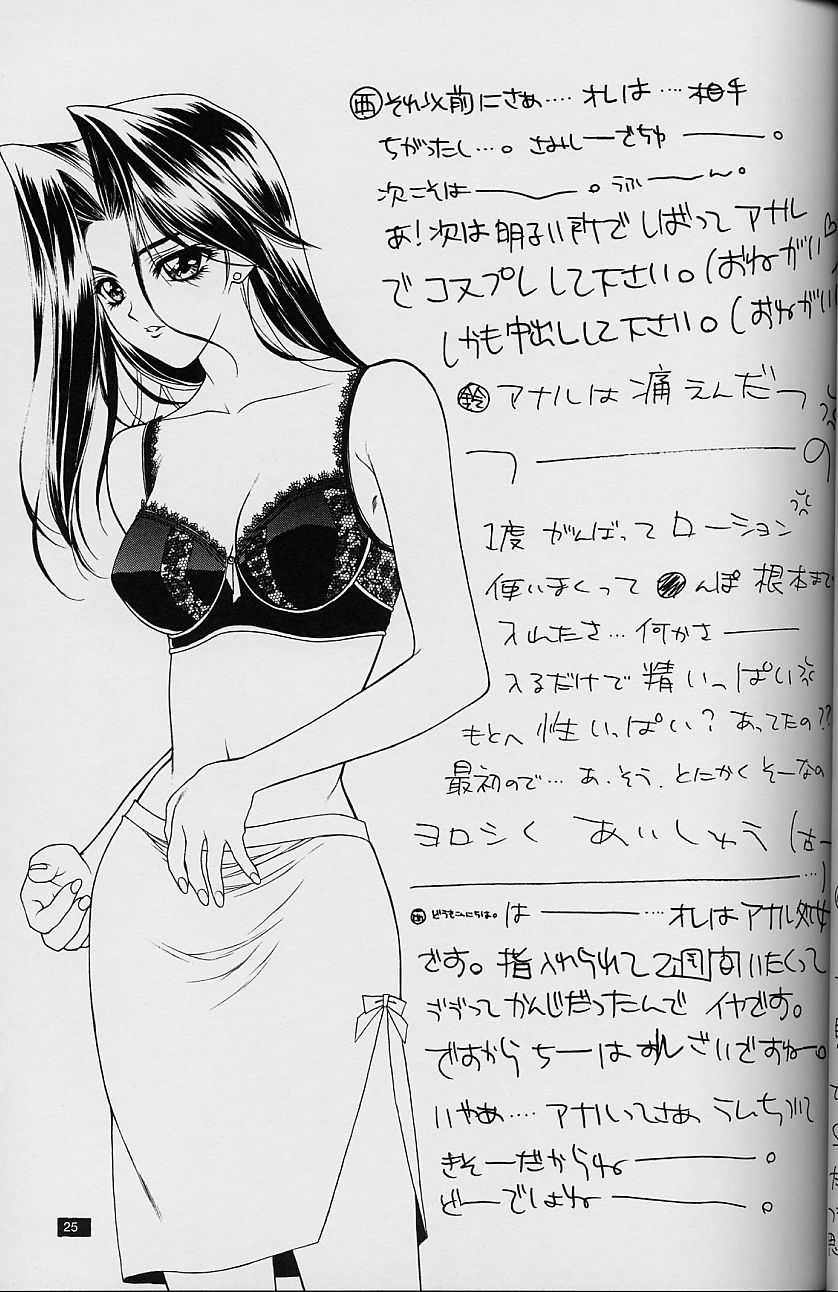 西 それ以前にさぁ‥‥オレは‥‥相手
ちがったし…。さみしーでちゅ――。
次こそは――。うふーん。
あ!次は明るい所でしばってアナル
でコスプレして下さい。(おねがい♡
しかも中出しして下さい。(おねがい
鈴 アナルは痛えんだっ
つ――の
1度 がんばって ローション
使いまくって ●んぽ 根本まで
入れたさ…何かさ――
入るだけで精いっぱい
もとへ 性いっぱい?あってたの??
最初ので…あ、そう、とにかくそーなの
ヨロシく あいしゅう
西 どうもこんにちは。は――‥‥オレはアナル処女
です。指入れられて2週間いたくって
ううってかんじだったんで イヤです。
ですから ちーは
いやぁ‥‥アナルってさぁ うんちついて
きそーだからね――。
どーでしょね――。
25